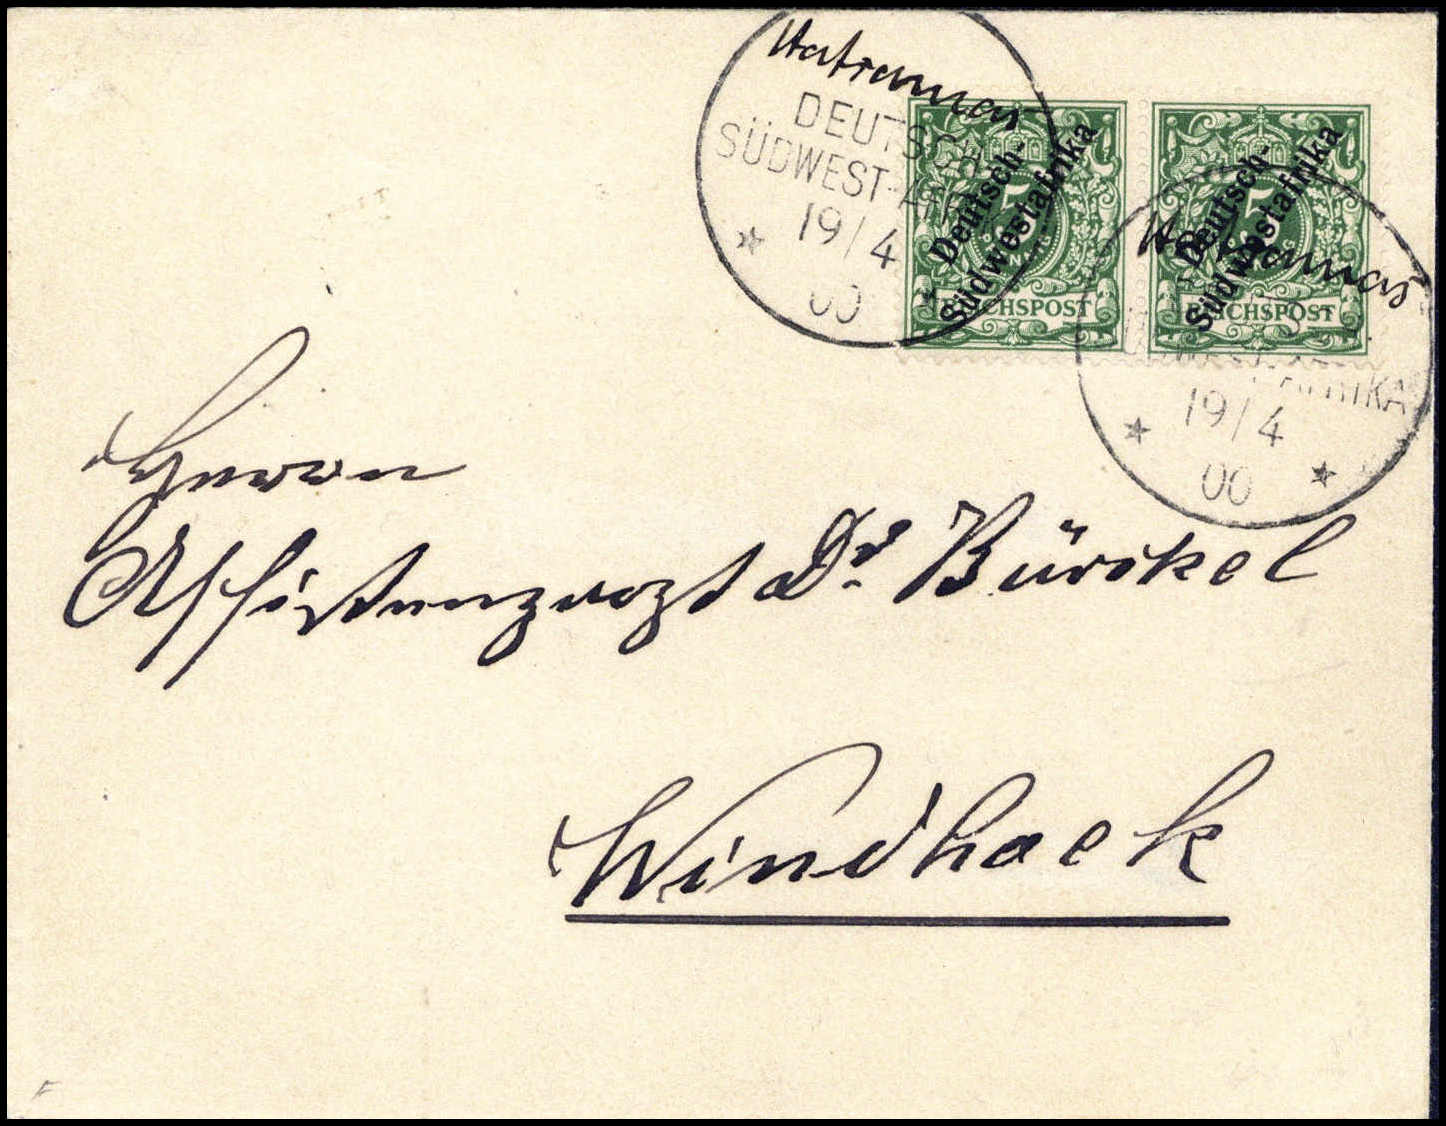 Hatsamas
DEUTSCH
SÜDWEST-AFRI
19/4
00
5
Deutsch-
Südwestafrika
REICHSPOST
5
Deutsch-
Südwestafrika
REICHSPOST
Hatsamas
WEST-AFRIKA
19/4
00
Herrn
Assistenzarzt Dr. Bürckel
Windhoek